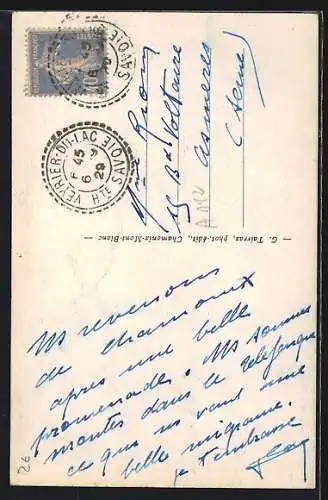 Veyrier-du-Lac Hte Savoie
6-9 29
Mme Ruon
15 Bd Voltaire
Asnières
(Seine)
A 112
G. Tairraz, phot.-édit., Chamonix-Mont-Blanc
Ns revenons
de chamonix
après une belle
promenade. Ns sommes
montés dans le téléférique
ce qui ns vaut une
belle migraine.
Je t'embrasse
26